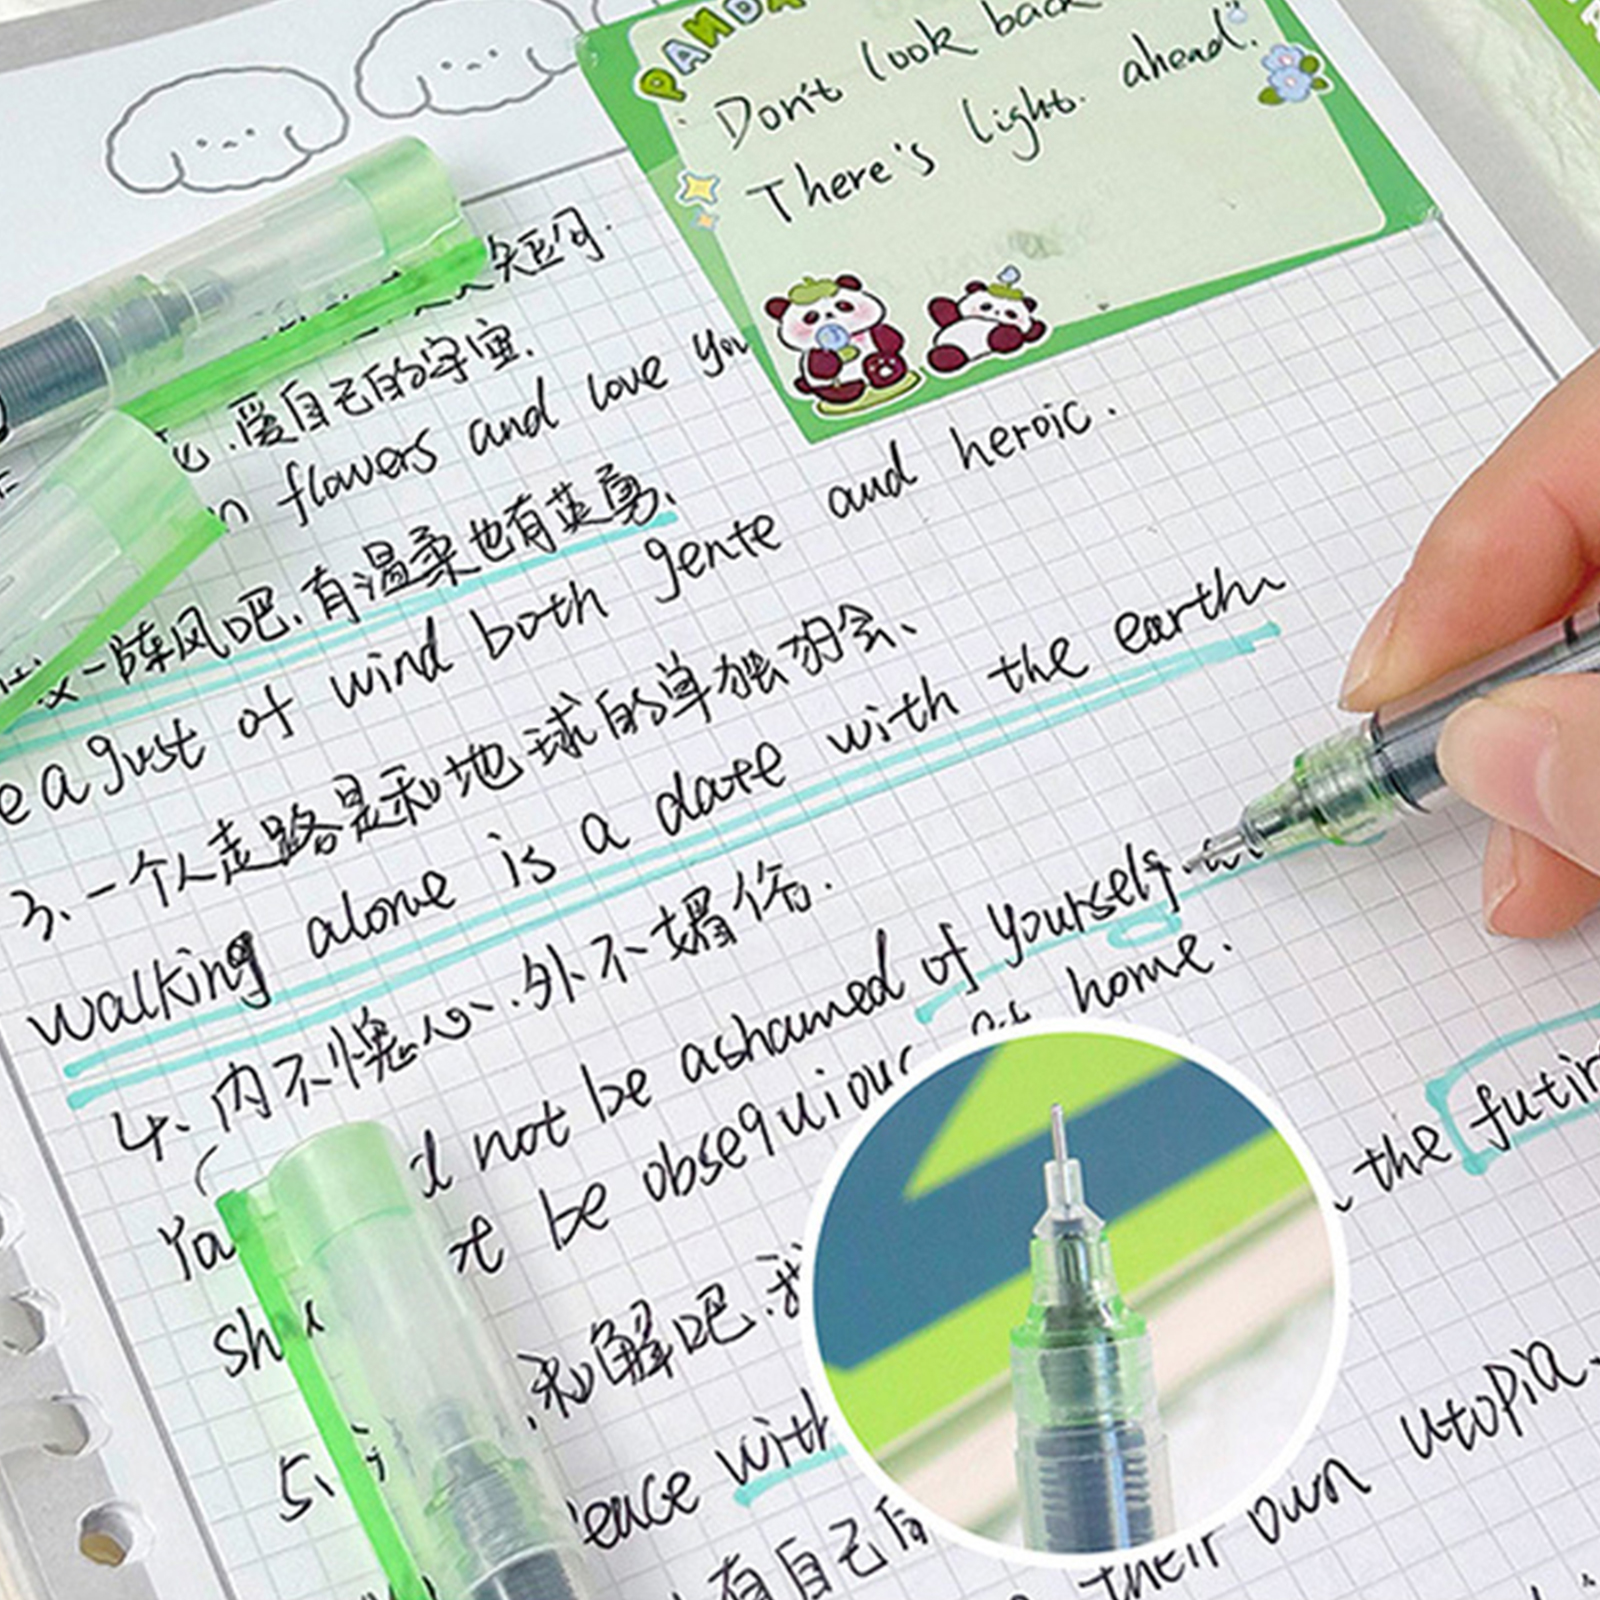 PANDA
Don't look back
There's light ahead".
短句.
花.爱自己的宇宙.
flowers and love you
一阵风吧.有温柔也有英勇.
e a gust of wind both gente and heroic.
3、一个人走路是和地球的单独约会、
walking alone is a date with the earth
4、内不愧心.外不媚俗.
You d not be ashamed of yourself.
be obsequiou home.
5、 .和解吧.我
the futir
with
有自己的
their own utopia.